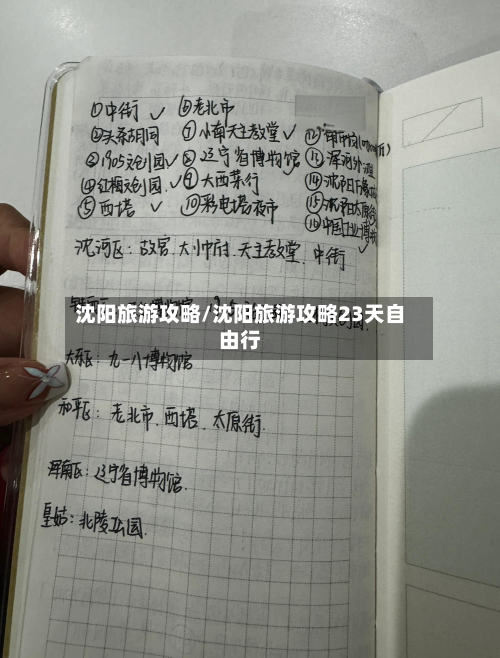 ①中街 ✓ ⑥老北市
②头条胡同 ⑦小南天主教堂 ✓
③1905文创园 ✓ ⑧辽宁省博物馆
④红梅文创园 ✓ ⑨大西菜行
⑤西塔 ✓ ⑩彩电塔夜市
⑬浑河外滩
⑭沈阳
⑮沈阳太原街
⑯中国工业博物
沈河区:故宫、大帅府、天主教堂、中街
沈阳旅游攻略/沈阳旅游攻略23天自
由行
大东区:九一八博物馆
和平区:老北市、西塔、太原街.
浑南区:辽宁省博物馆.
皇姑:北陵公园.